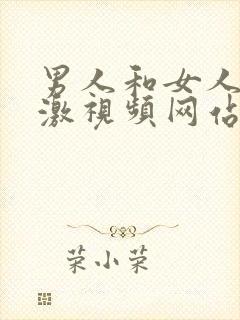 男人和女人
激视频网佔
荣小荣